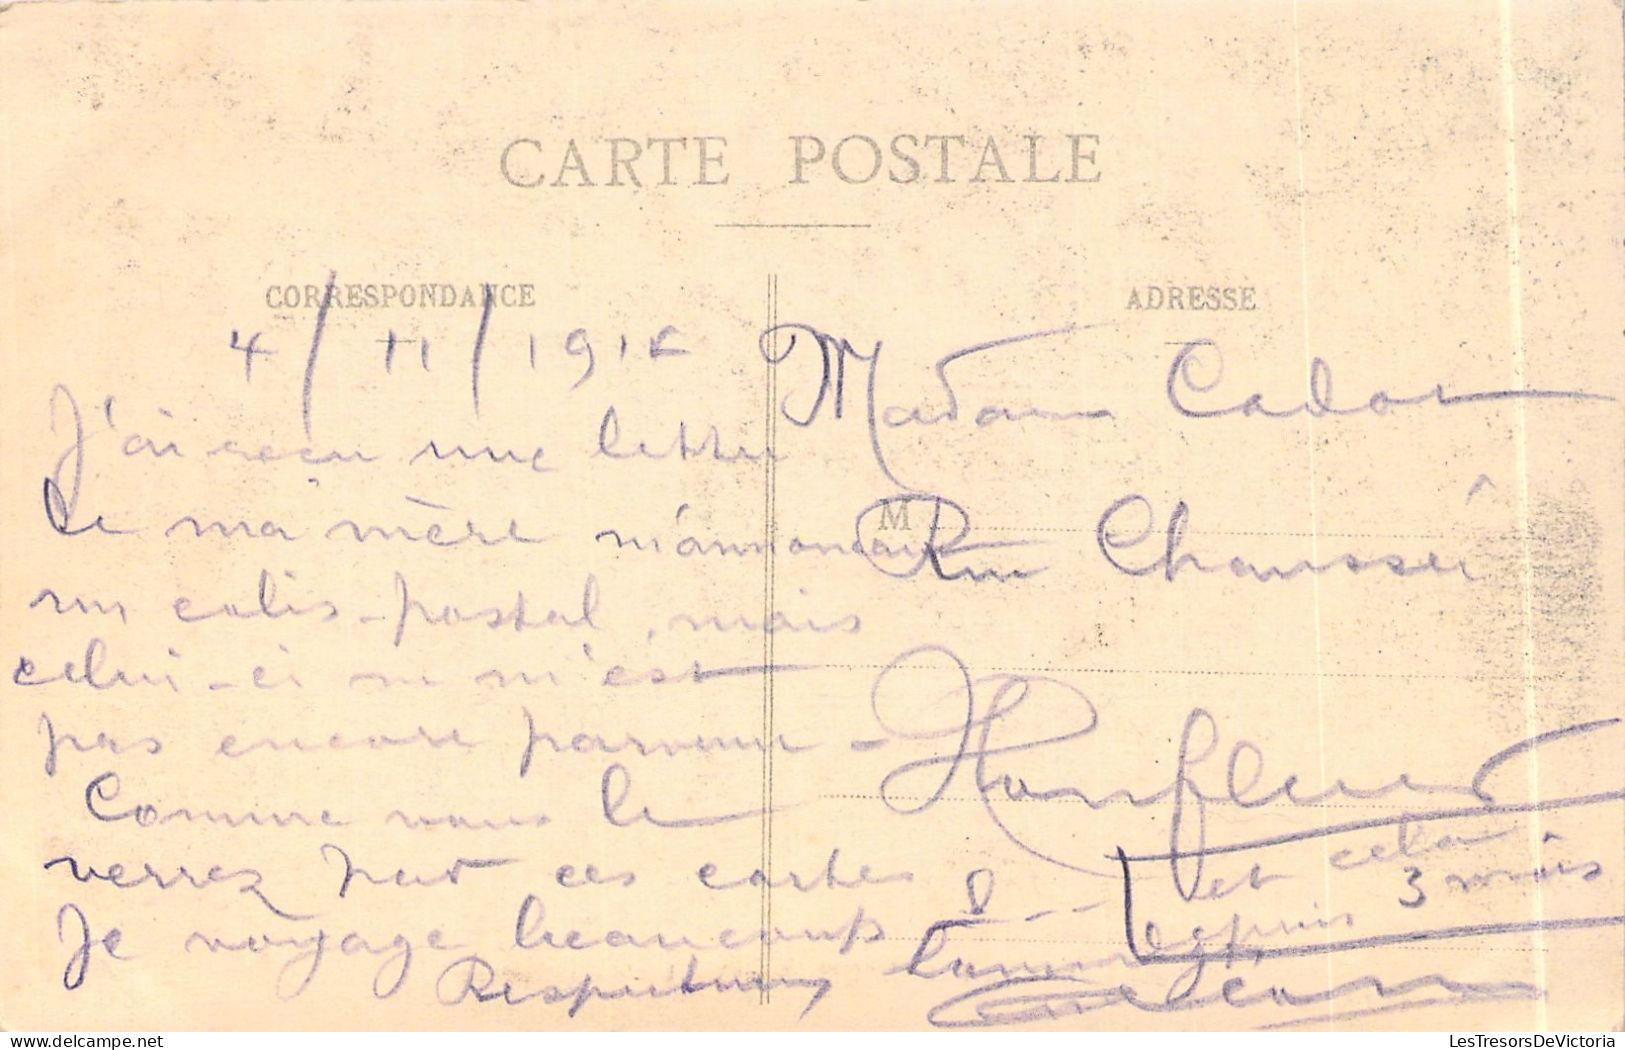 CARTE POSTALE
CORRESPONDANCE
4/11/191
J'ai reçu une lettre
de ma mère m'annonçant
un colis-postal, mais
celui-ci ne m'est
pas encore parvenu -
Comme vous le
verrez par ces cartes
Je voyage beaucoup
et cela
depuis 3 mois
Respectueux
ADRESSE
Madame Cador
M
Rue Chaussée
Honfleur
LesTresorsDeVictoria